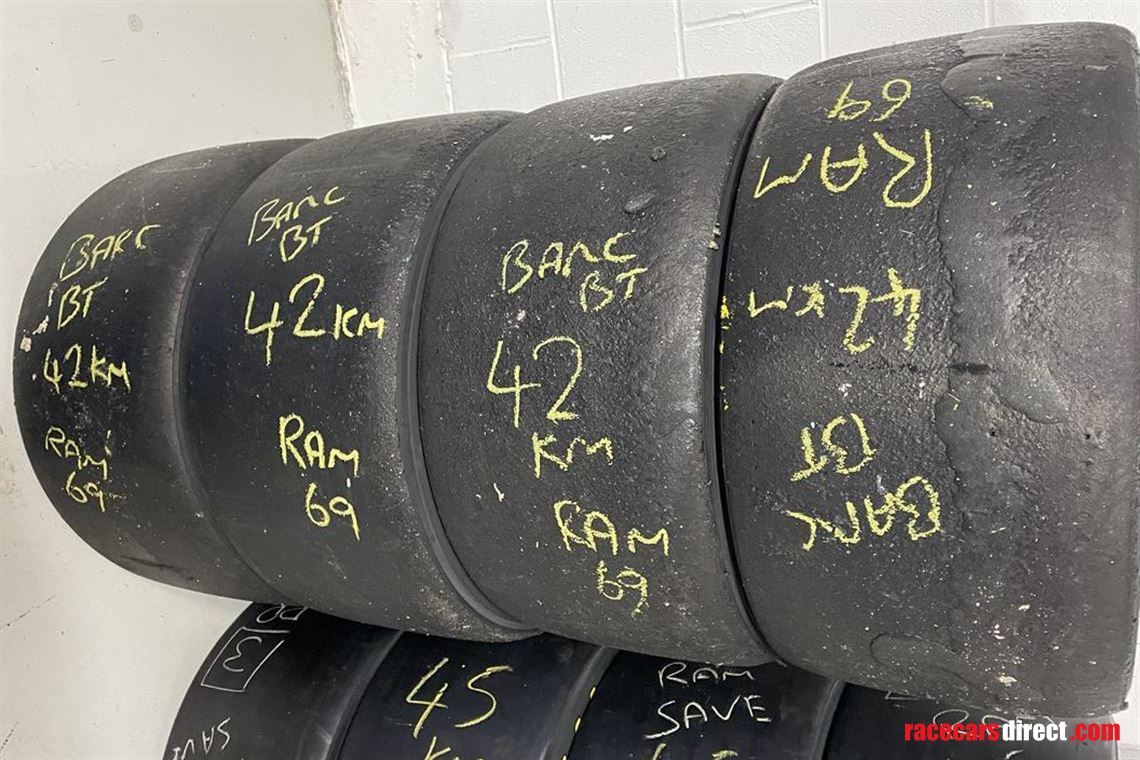 BARC
BT
42KM
RAM
69
BARC
BT
42KM
RAM
69
BARC
BT
42
KM
RAM
69
BARC
BT
42KM
RAM
69
3
45
RAM
SAVE
racecarsdirect.com